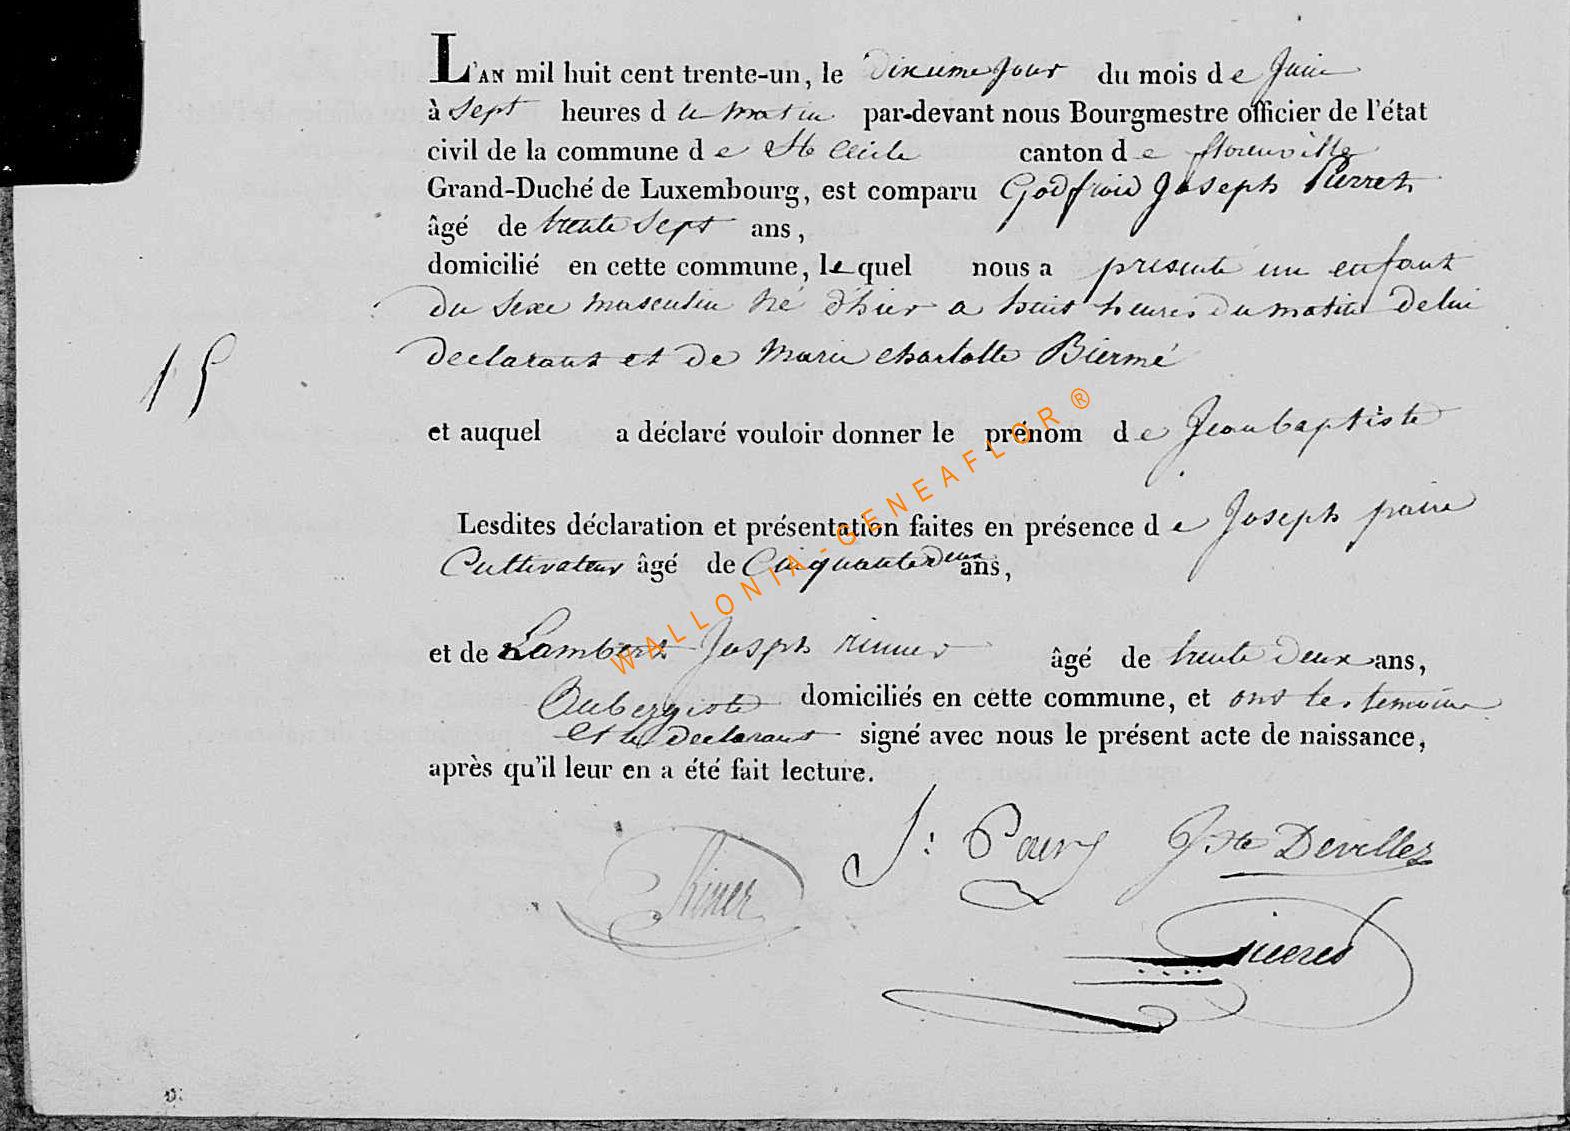 L'AN mil huit cent trente-un, le dixieme jour du mois de juin
à sept heures du matin par-devant nous Bourgmestre officier de l'état
civil de la commune de Ste Cecile canton de florenville
Grand-Duché de Luxembourg, est comparu Godfroid Joseph Pierret
âgé de trente sept ans,
domicilié en cette commune, lequel nous a presenté un enfant
du sexe masculin né d'hier a huit heures du matin de lui
15
declarant et de Marie charlotte Biermé
et auquel a déclaré vouloir donner le prénom de Jean baptiste
Lesdites déclaration et présentation faites en présence de Joseph
Cultivateur âgé de Cinquante deux ans,
et de Lambert Joseph âgé de trente deux ans,
Aubergiste domiciliés en cette commune, et ont les temoins
et le declarant signé avec nous le présent acte de naissance,
après qu'il leur en a été fait lecture.
J: Jh Devillez
WALLONIA-GENEAFLOR®